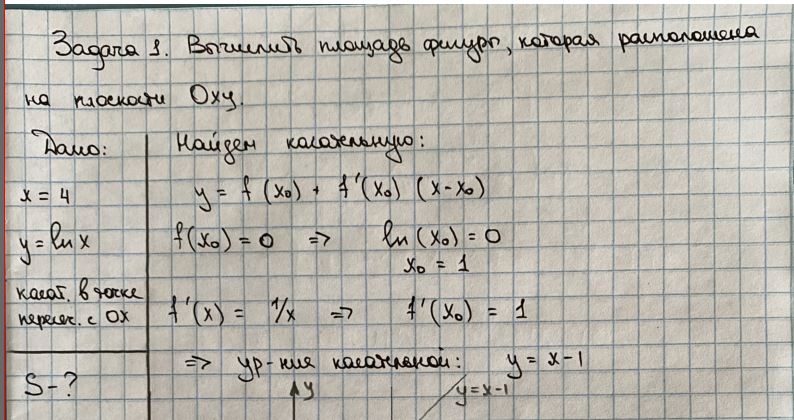 Задача 1. Вычислить площадь фигуры, которая расположена
на плоскости Oxy.
Дано:
x = 4
y = ln x
касат. в точке
перес. с OX
S - ?
Найдем касательную:
y = f(x₀) + f'(x₀) (x-x₀)
f(x₀) = 0 => ln(x₀) = 0
x₀ = 1
f'(x) = 1/x => f'(x₀) = 1
=> ур-ния касательной: y = x-1
y
y=x-1